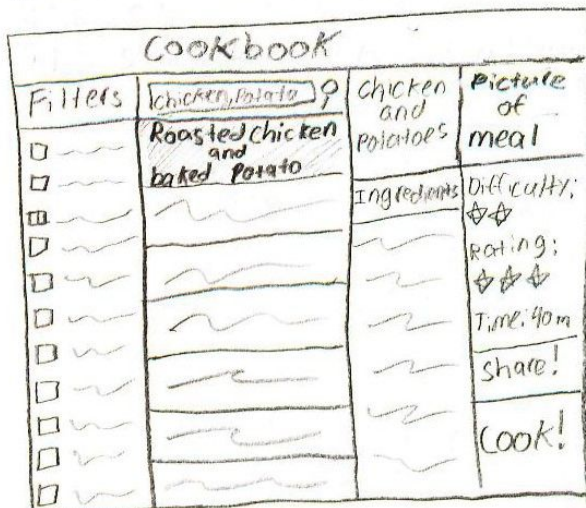 Cookbook
Filters
chicken, Potato
Roasted chicken
and
baked Potato
Chicken
and
Potatoes
Ingredients
Picture
of
meal
Difficulty:
Rating:
Time: 40m
Share!
Cook!